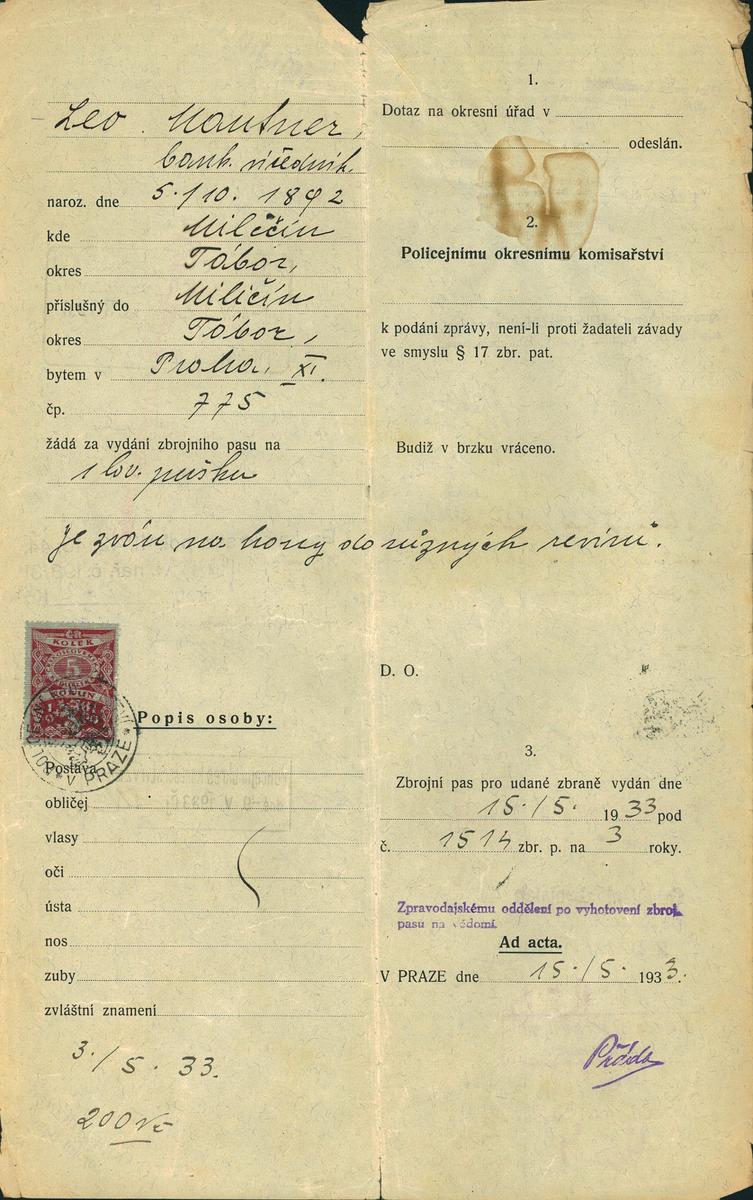 Leo Mautner,
bank. úředník
naroz. dne 5./10. 1892
kde Miličín
okres Tábor,
příslušný do Miličín
okres Tábor,
bytem v Praha, XI.
čp. 775
žádá za vydání zbrojního pasu na
1 lov. pušku
je zván na hony do různých revírů.
KOLEK
5
KORUN
V PRAZE
Popis osoby:
Postava
obličej
vlasy
oči
ústa
nos
zuby
zvláštní znamení
3./5. 33.
200 Kč
1.
Dotaz na okresní úřad v
odeslán.
2.
Policejnímu okresnímu komisařství
k podání zprávy, není-li proti žadateli závady
ve smyslu § 17 zbr. pat.
Budiž v brzku vráceno.
D. O.
3.
Zbrojní pas pro udané zbraně vydán dne
15./5. 1933 pod
č. 1514 zbr. p. na 3 roky.
Zpravodajskému oddělení po vyhotovení zbroj.
pasu na vědomí.
Ad acta.
V PRAZE dne 15./5. 1933.